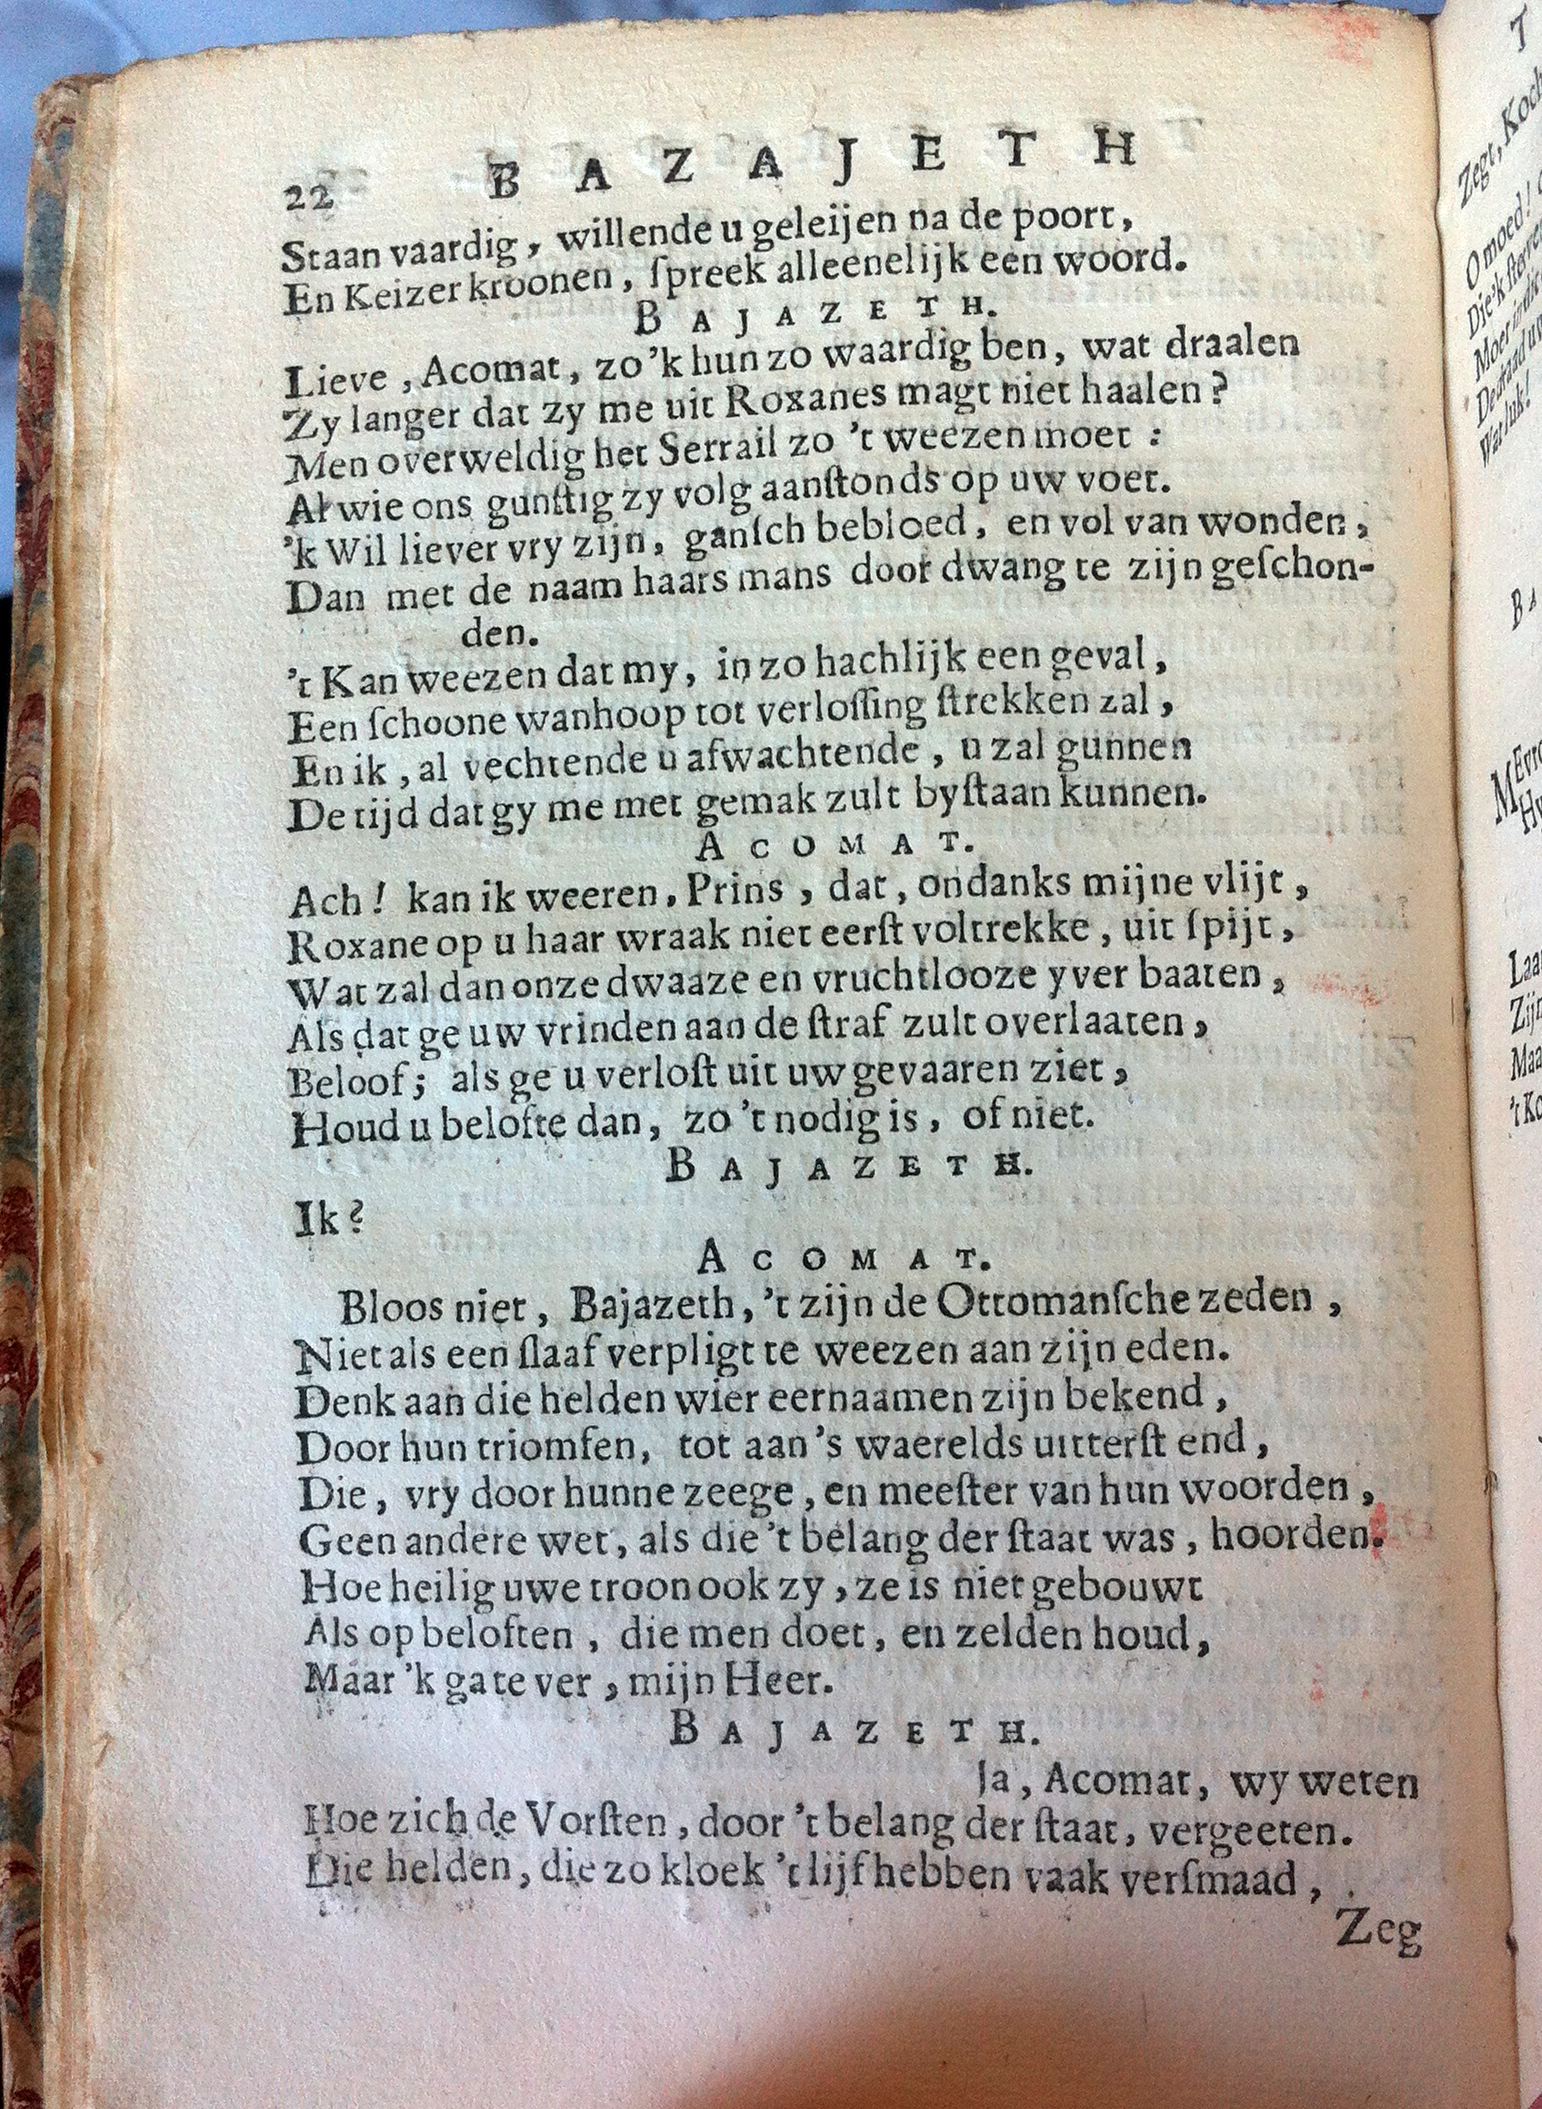 22 BAZAJETH
Staan vaardig, willende u geleijen na de poort,
En Keizer kroonen, ſpreek alleenelijk een woord.
BAJAZETH.
Lieve, Acomat, zo 'k hun zo waardig ben, wat draalen
Zy langer dat zy me uit Roxanes magt niet haalen?
Men overweldig het Serrail zo 't weezen moet:
Al wie ons gunſtig zy volg aanſtonds op uw voet.
'k Wil liever vry zijn, ganſch bebloed, en vol van wonden,
Dan met de naam haars mans door dwang te zijn geſchon-
den.
't Kan weezen dat my, in zo hachlijk een geval,
Een ſchoone wanhoop tot verloſſing ſtrekken zal,
En ik, al vechtende u afwachtende, u zal gunnen
De tijd dat gy me met gemak zult byſtaan kunnen.
ACOMAT.
Ach! kan ik weeren, Prins, dat, ondanks mijne vlijt,
Roxane op u haar wraak niet eerſt voltrekke, uit ſpijt,
Wat zal dan onze dwaaze en vruchtlooze yver baaten,
Als dat ge uw vrinden aan de ſtraf zult overlaaten,
Beloof; als ge u verloſt uit uw gevaaren ziet,
Houd u belofte dan, zo 't nodig is, of niet.
BAJAZETH.
Ik?
ACOMAT.
Bloos niet, Bajazeth, 't zijn de Ottomanſche zeden,
Niet als een ſlaaf verpligt te weezen aan zijn eden.
Denk aan die helden wier eernaamen zijn bekend,
Door hun triomfen, tot aan 's waerelds uitterſt end,
Die, vry door hunne zeege, en meeſter van hun woorden,
Geen andere wet, als die 't belang der ſtaat was, hoorden.
Hoe heilig uwe troon ook zy, ze is niet gebouwt
Als op beloften, die men doet, en zelden houd,
Maar 'k ga te ver, mijn Heer.
BAJAZETH.
Ja, Acomat, wy weten
Hoe zich de Vorſten, door 't belang der ſtaat, vergeeten.
Die helden, die zo kloek 't lijf hebben vaak verſmaad,
Zeg
T
Zegt, Koch
O moed!
Die 'k
Moer
Wat luk!
BA
MEvr
Hy
Laa
Zijn
Maa
't Ko